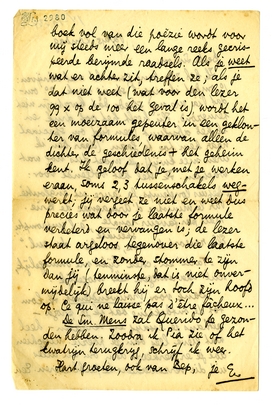 boek vol van die poëzie wordt voor
mij steeds meer een lange reeks gecris-
peerde berijmde raadsels. Als je weet
wat er achter zit, treffen ze; als je
dat niet weet (wat voor den lezer
99 x op de 100 het geval is) wordt het
een moeizaam gepeuter in een geklon-
ter van formules waarvan alleen de
dichter de geschiedenis + het geheim
kent. Ik geloof dat je met je werken
eraan, soms 2, 3 tusschenschakels weg-
werkt; jij vergeet ze niet en weet dus
precies wat door je laatste formule
verbeterd en vervangen is; de lezer
staat argeloos tegenover die laatste
formule, en zonder stommer te zijn
dan jij (tenminste, dat is niet onver-
mijdelijk) breekt hij er toch zijn hoofd
op. Ce qui ne laisse pas d'être fâcheux...
De Sm. Mens zal Querido je gezon-
den hebben. Zoodra ik Pia zie of het
kwatrijn terugkrijg, schrijf ik weer.
Hart. groeten, ook van Bep, je E.